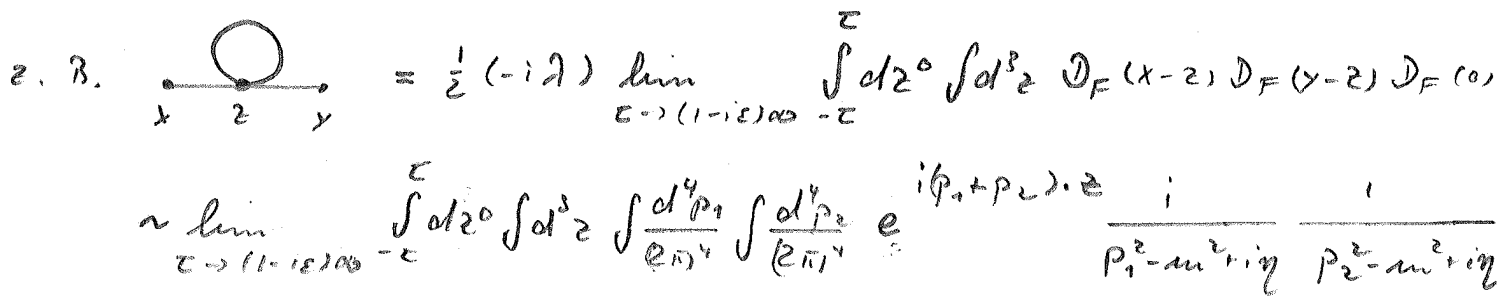 z. B. x z y = 1/2 (-iλ) lim_{τ→(1-iε)∞} ∫_{-τ}^{τ} dz⁰ ∫d³z D_F (x-z) D_F (y-z) D_F (0)
~ lim_{τ→(1-iε)∞} ∫_{-τ}^{τ} dz⁰ ∫d³z ∫ d⁴p₁/(2π)⁴ ∫ d⁴p₂/(2π)⁴ e^{i(p₁+p₂)·z} i/(p₁²-m²+iη) i/(p₂²-m²+iη)